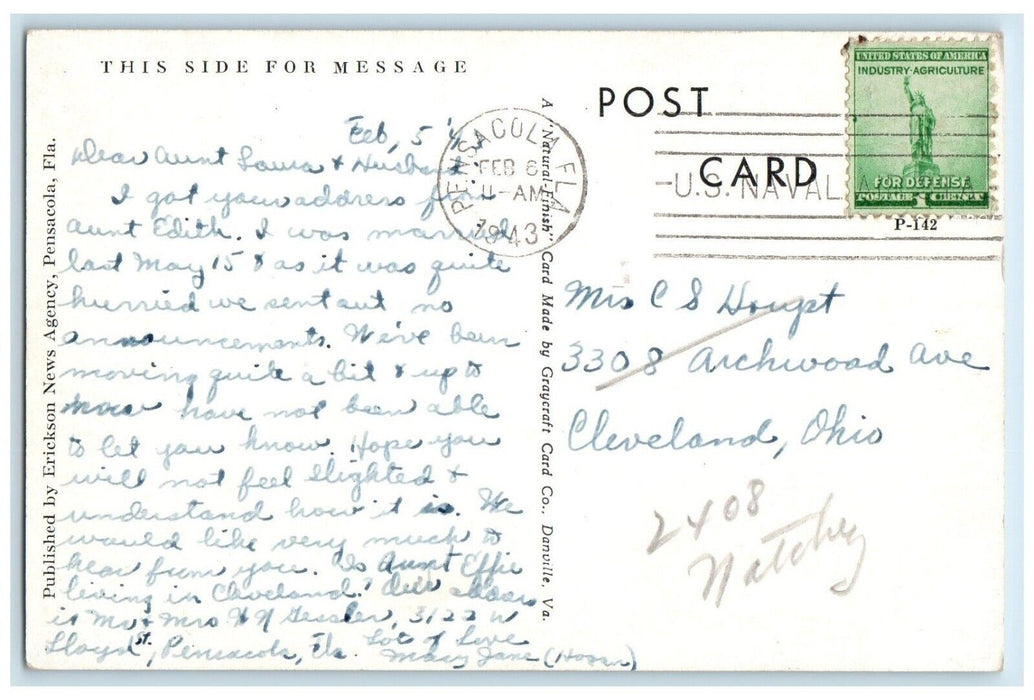 THIS SIDE FOR MESSAGE
Feb, 5 '4
Dear Aunt Laura & Husband
I got your address from
Aunt Edith. I was married
last May 15 & as it was quite
hurried we sent out no
announcements. We've been
moving quite a bit & up to
now have not been able
to let you know. Hope you
will not feel slighted &
understand how it is. We
would like very much to
hear from you. Is Aunt Effie
living in Cleveland? Our address
is Mr & Mrs H N Gessler, 3122 W
Lloyd St., Pensacola, Fla. Lots of Love
Mary Jane (Hogan)
Published by Erickson News Agency, Pensacola, Fla.
A "Natural-Finish" Card Made by Graycraft Card Co., Danville, Va.
POST
CARD
PENSACOLA FLA
FEB 6
11-AM
1943
U.S. NAVAL
UNITED STATES OF AMERICA
INDUSTRY-AGRICULTURE
FOR DEFENSE
POSTAGE 1 CENT
P-142
Mrs C S Houpt
3308 Archwood Ave
Cleveland, Ohio
2408
Natchey